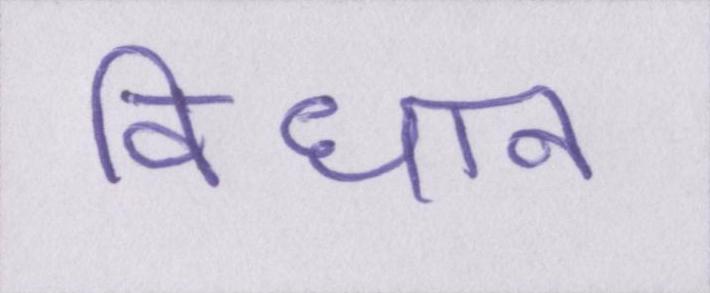 विधान